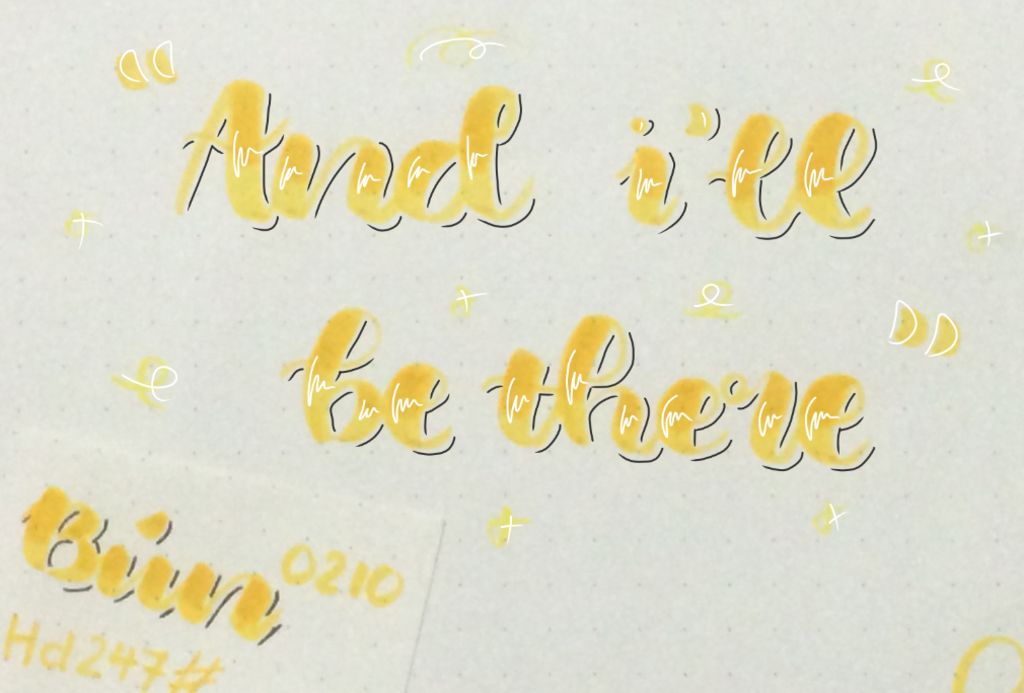 “And i'll
be there”
Biun 0210
Hd247#